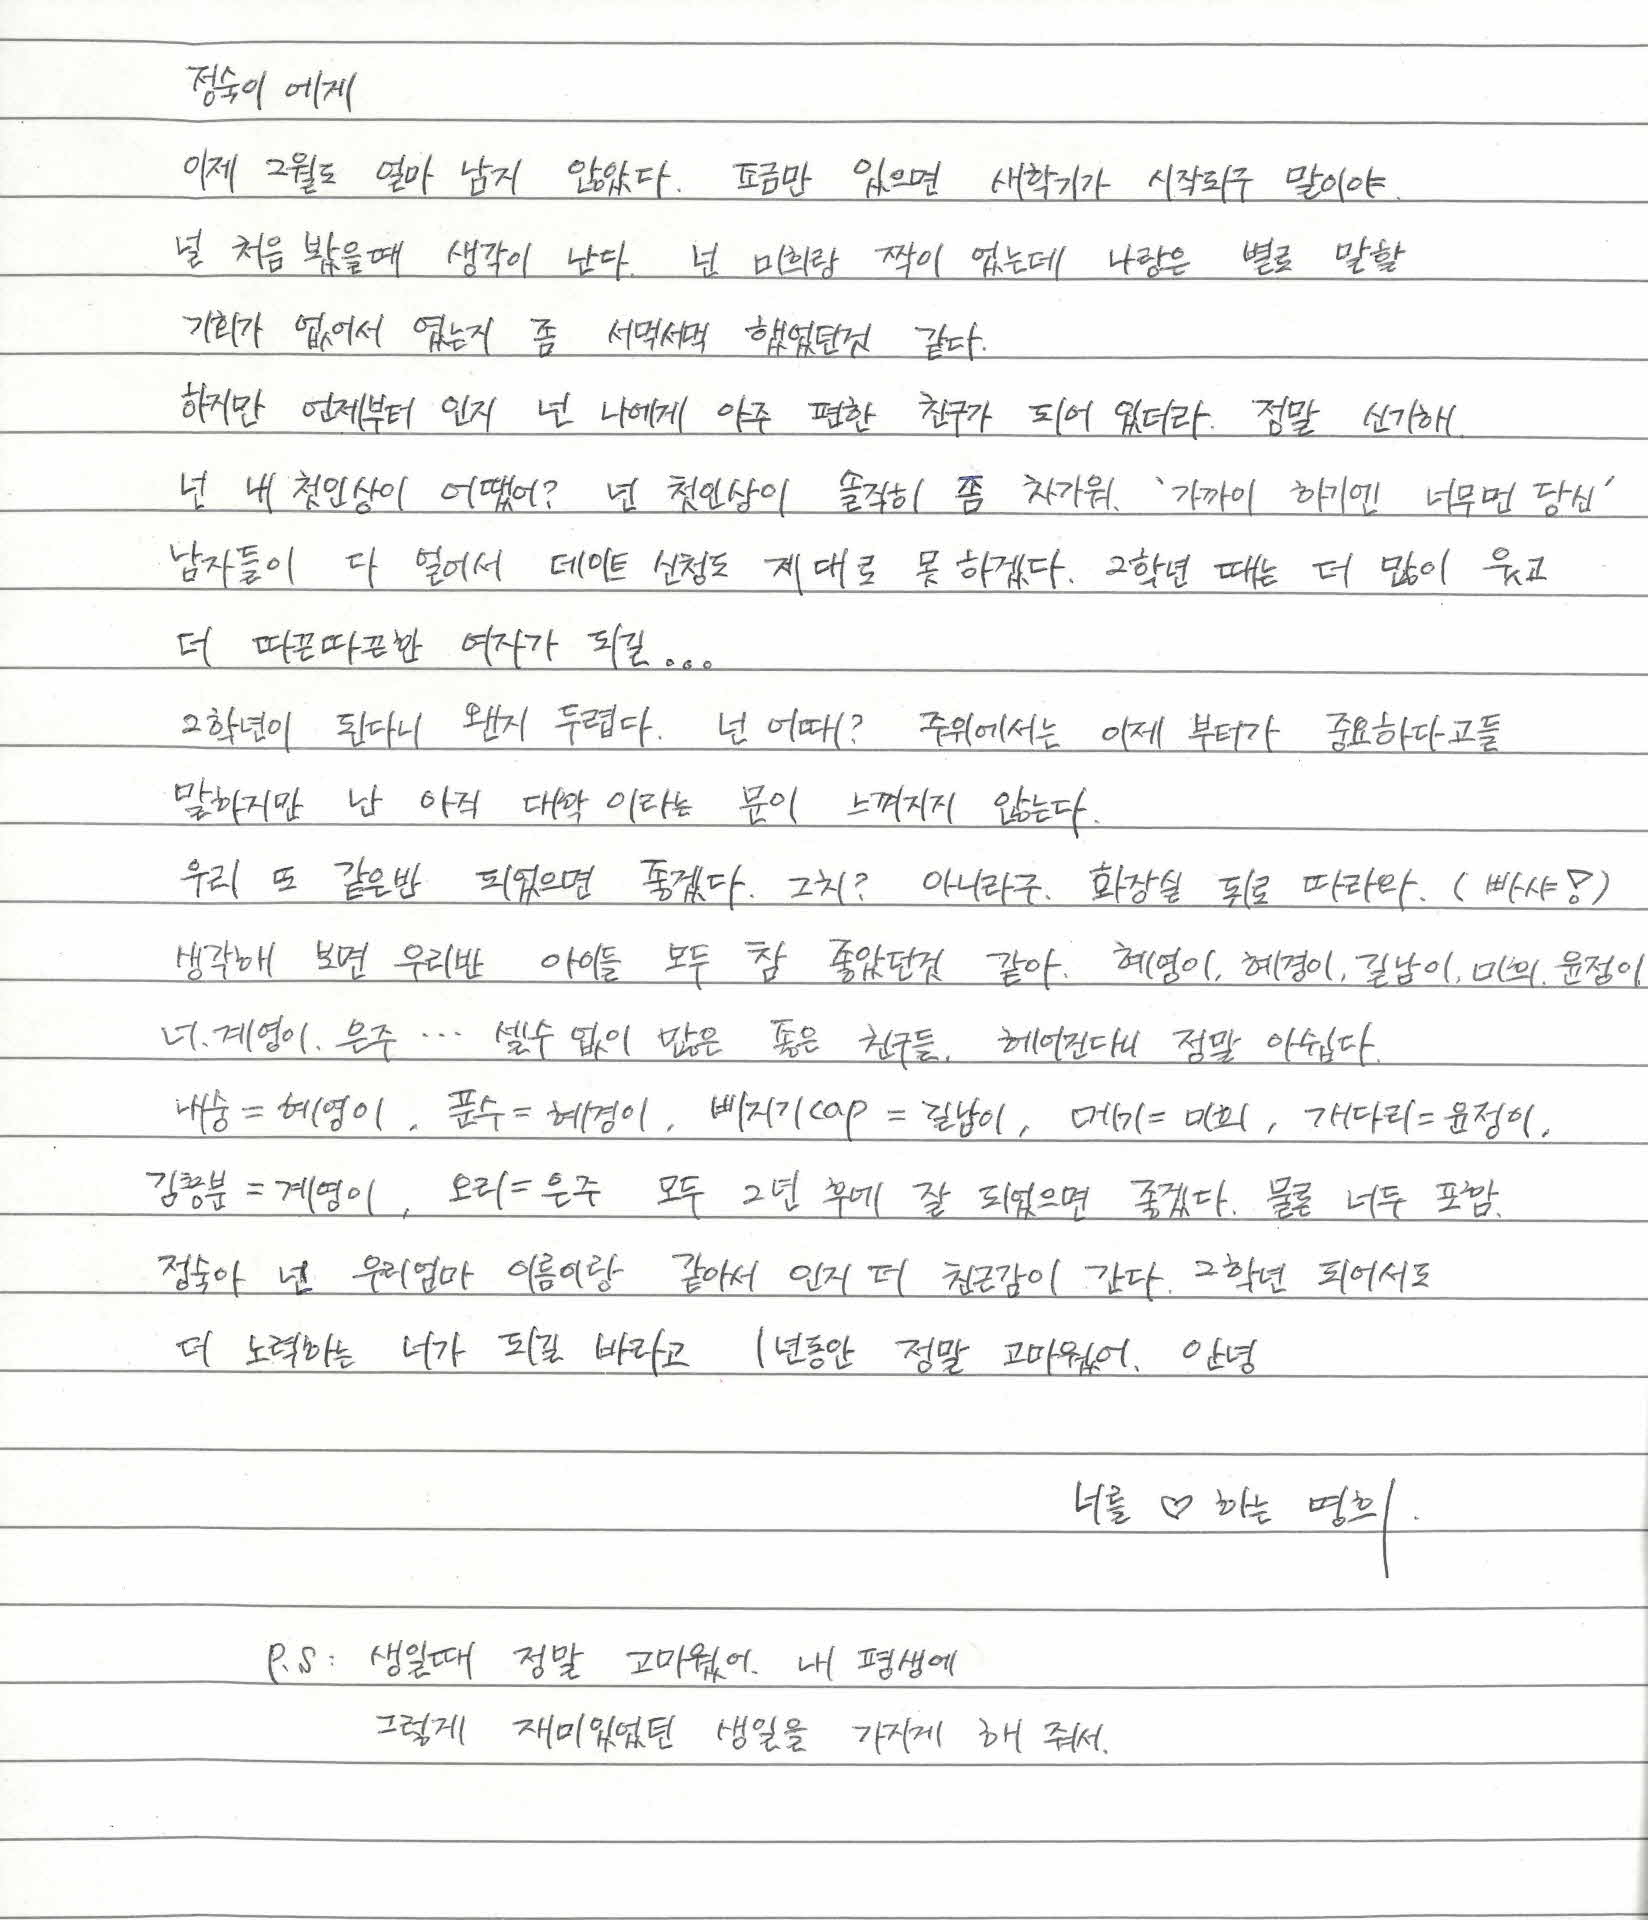 정숙이 에게
이제 2월도 얼마 남지 않았다. 쪼금만 있으면 새학기가 시작되구 말이야.
널 처음 봤을때 생각이 난다. 넌 미희랑 짝이 였는데 나랑은 별로 말할
기회가 없어서 였는지 좀 서먹서먹 했었던것 같다.
하지만 언제부터 인지 넌 나에게 아주 편한 친구가 되어 있더라. 정말 신기해.
넌 내 첫인상이 어땠어? 넌 첫인상이 솔직히 쫌 차가워. '가까이 하기엔 너무먼 당신'
남자들이 다 얼어서 데이트 신청도 제대로 못 하겠다. 2학년 때는 더 많이 웃고
더 따끈따끈한 여자가 되길...
2학년이 된다니 왠지 두렵다. 넌 어때? 주위에서는 이제 부터가 중요하다고들
말하지만 난 아직 대학 이라는 문이 느껴지지 않는다.
우리 또 같은반 되었으면 좋겠다. 그치? 아니라구. 화장실 뒤로 따라와. (빠샤!)
생각해 보면 우리반 아이들 모두 참 좋았던것 같아. 혜영이, 혜경이, 길남이, 미희. 윤정이.
너. 계영이. 은주 … 셀수 없이 많은 좋은 친구들. 헤어진다니 정말 아쉽다.
내숭 = 혜영이, 푼수 = 혜경이, 삐지기cap = 길남이, 메기 = 미희, 개다리 = 윤정이,
= 계영이, 오리 = 은주 모두 2년 후에 잘 되었으면 좋겠다. 물론 너두 포함.
정숙아 넌 우리엄마 이름이랑 같아서 인지 더 친근감이 간다. 2학년 되어서도
더 노력하는 너가 되길 바라고 1년동안 정말 고마웠어. 안녕
너를 ♡ 하는 명희.
P.S: 생일때 정말 고마웠어. 내 평생에
그렇게 재미있었던 생일을 가지게 해 줘서.